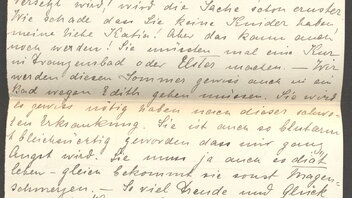 versetzt wird! wird die Sache schon ernster
Wie schade dass Sie keine Kinder haben
meine liebe Katia! Aber das kann auch
noch werden! Sie müssen mal eine Kur
in Franzensbad oder Elster machen – Wir
werden diesen Sommer gewiss auch in ein
Bad wegen Edith gehen müssen. Sie wird
es gewiss nötig haben nach dieser schwe-
ren Erkrankung. Sie ist auch so blutarm
u bleichsüchtig geworden dass mir ganz
Angst wird. Sie muss ja auch so diät
leben – gleich bekommt sie sonst Magen-
schmerzen. – So viel Freude und Glück